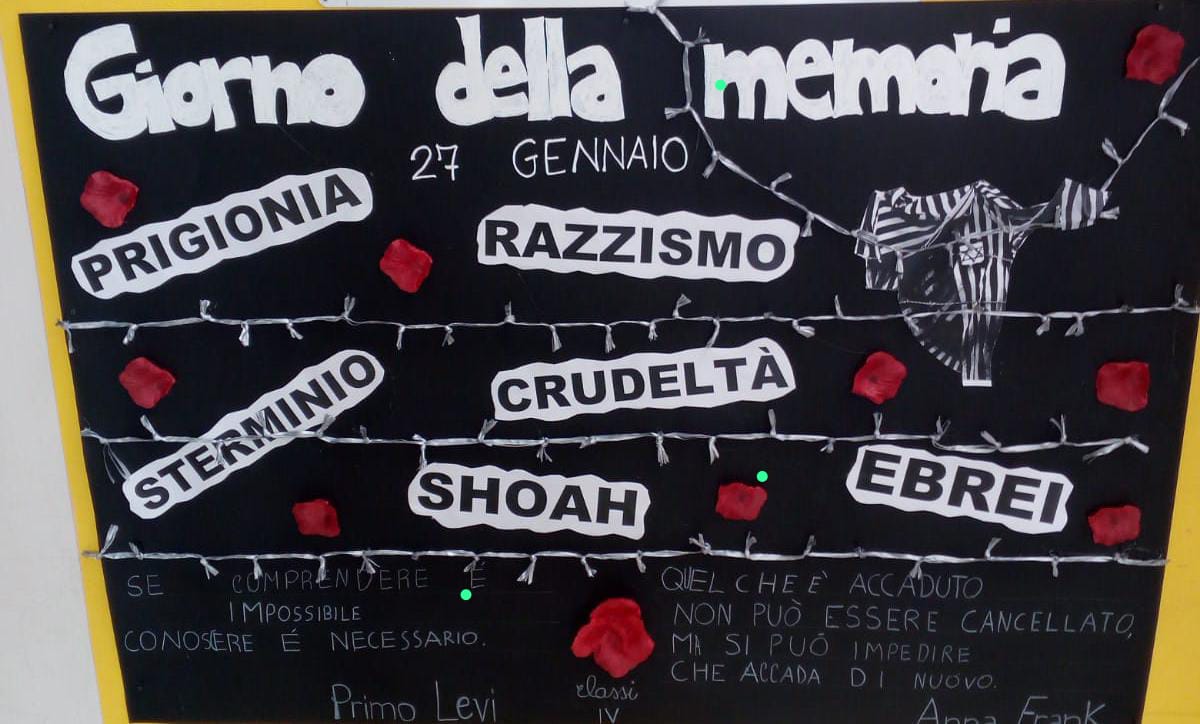 Giorno della memoria
27 GENNAIO
PRIGIONIA
RAZZISMO
STERMINIO
CRUDELTÀ
SHOAH
EBREI
SE COMPRENDERE É
IMPOSSIBILE
CONOSERE É NECESSARIO.
Primo Levi
classi
IV
QUEL CHE E' ACCADUTO
NON PUÒ ESSERE CANCELLATO,
MA SI PUÓ IMPEDIRE
CHE ACCADA DI NUOVO.
Anna Frank